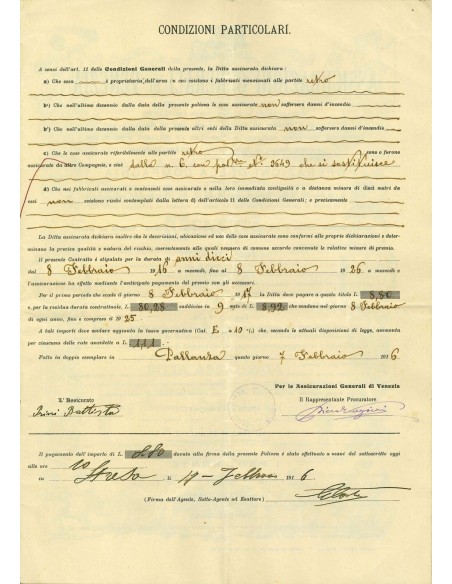 CONDIZIONI PARTICOLARI.
A sensi dell'art. 11 delle Condizioni Generali della presente, la Ditta assicurata dichiara:
a) Che essa è proprietaria dell'area in cui esistono i fabbricati menzionati alle partite retro
b') Che nell'ultimo decennio dalla data della presente polizza le cose assicurate non soffersero danni d'incendio
b'') Che nell'ultimo decennio dalla data della presente altri enti della Ditta assicurata non soffersero danni d'incendio
c) Che le cose assicurate riferibilmente alle partite retro sono o furono
assicurate da altre Compagnie, e cioè dalla n. 6, con 3649 che si sostituisce
d) Che nei fabbricati assicurati o contenenti cose assicurate e nella loro immediata contiguità o a distanza minore di dieci metri da
essi non esistono rischi contemplati dalla lettera d) dell'articolo 11 delle Condizioni Generali; e precisamente
La Ditta assicurata dichiara inoltre che le descrizioni, ubicazione ed uso delle cose assicurate sono conformi alle proprie dichiarazioni e deter-
minano la qualità e natura del rischio, correlativamente alle quali vennero di comune accordo convenute le relative misure di premio.
Il presente Contratto è stipulato per la durata di anni dieci
dal 8 Febbraio 1916 a mezzodì, fino al 8 Febbraio 1926 a mezzodì e
l'assicurazione ha effetto mediante l'anticipato pagamento del premio con gli accessori.
Per il primo periodo che scade il giorno 8 Febbraio 1917 la Ditta deve pagare a questo titolo L. 8,80
e, per la residua durata contrattuale, L. 80,28 suddivise in 9 rate di L. 8,92 che cadono il giorno 8 Febbraio
di ogni anno, fino e compreso il 1925.
A tali importi deve andare aggiunta la tassa governativa (Cat. E a 10 %), che, secondo le attuali disposizioni di legge, ammonta
per ciascuna delle rate annuali a L. 1,11.
Fatto in doppio esemplare in Pallanza questo giorno 7 Febbraio 1916
Per le Assicurazioni Generali di Venezia
L'Assicurato
Il Rappresentante Procuratore
Battista
Il pagamento dell'importo di L. 8.80 dovuto alla firma della presente Polizza è stato effettuato a mano del sottoscritto oggi
alle ore 10
in Stresa li 19 Febbraio 1916
(Firma dell'Agente, Sotto-Agente od Esattore)